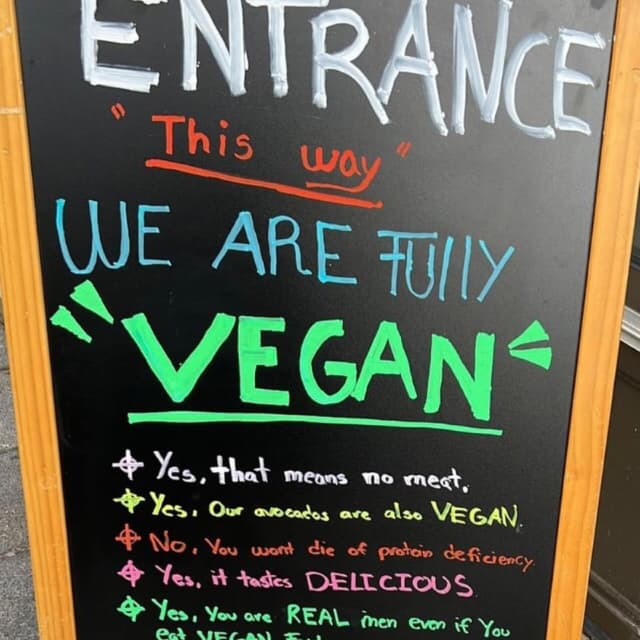 ENTRANCE
"This way"
WE ARE FUllY
VEGAN
Yes, that means no meat.
Yes, Our avocados are also VEGAN.
No, You wont die of protein deficiency.
Yes, it tastes DELICIOUS.
Yes, You are REAL men even if You
eat VEGAN